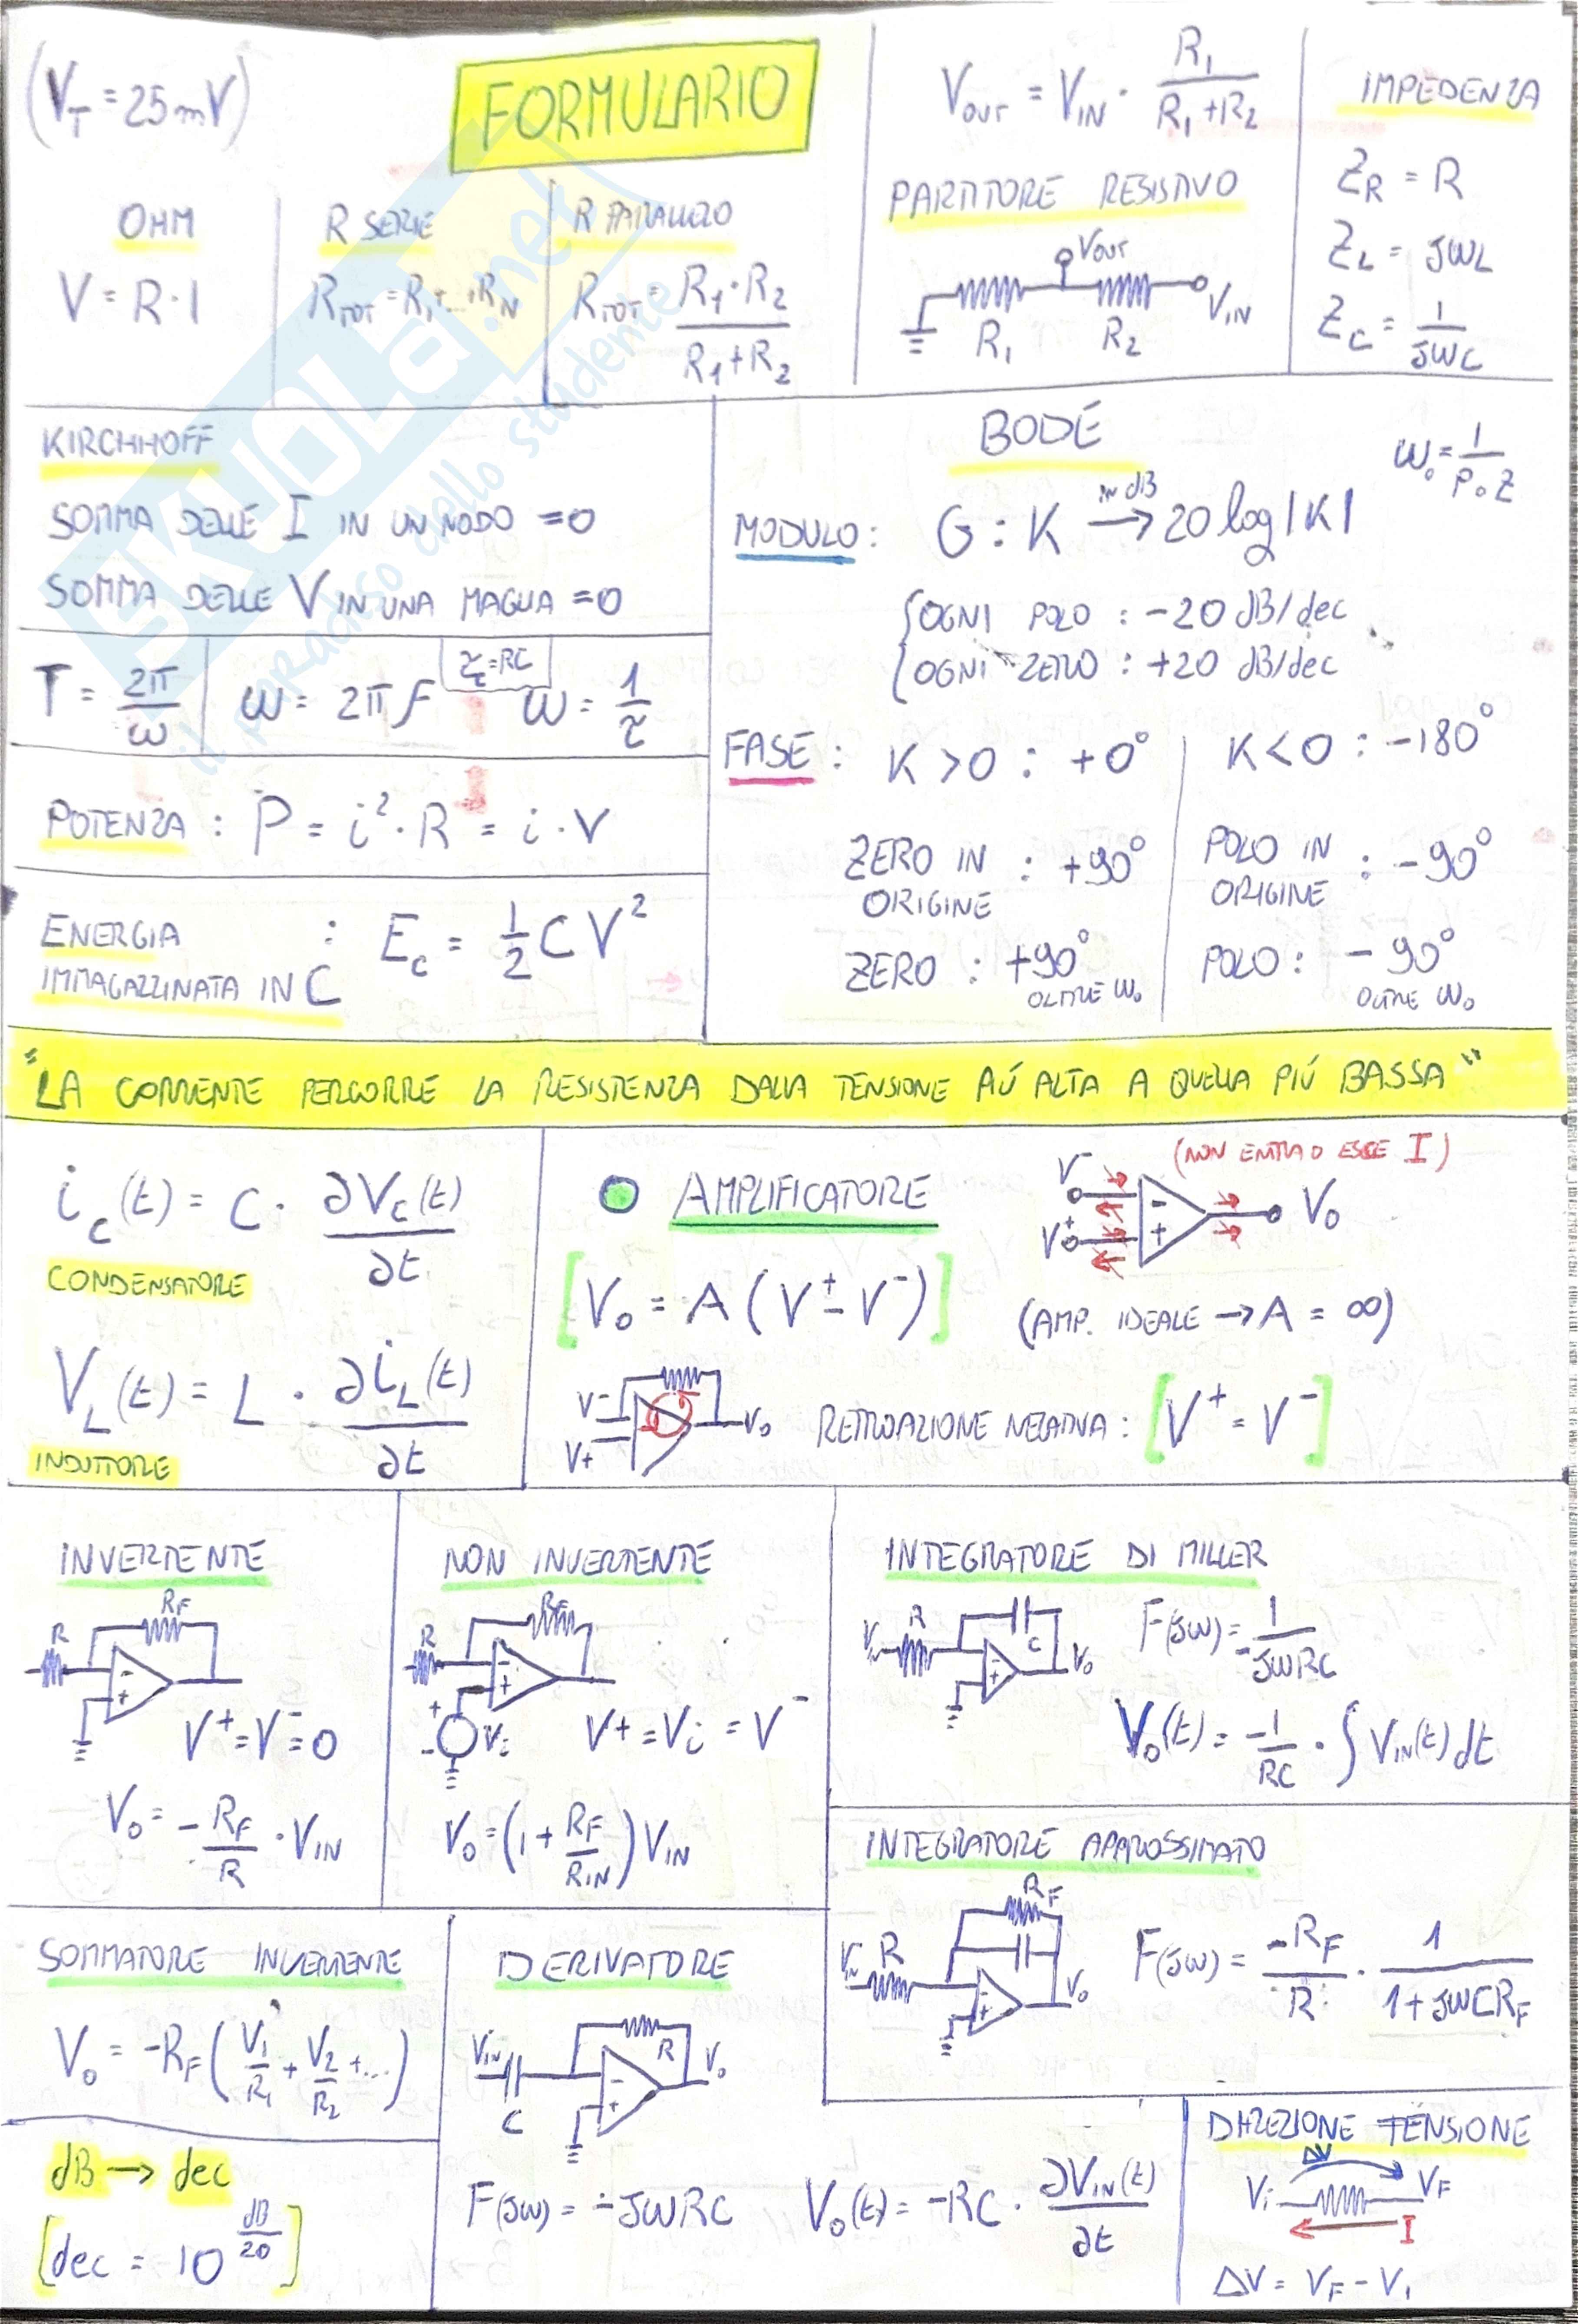 (V_T = 25 mV)
FORMULARIO
OHM
V = R · I
R SERIE
R_TOT = R_1 + ... + R_N
R PARALLELO
R_TOT = R_1 · R_2 / R_1 + R_2
V_OUT = V_IN · R_1 / R_1 + R_2
PARTITORE RESISTIVO
V_OUT
V_IN
R_1 R_2
IMPEDENZA
Z_R = R
Z_L = JWL
Z_C = 1 / JWC
KIRCHHOFF
SOMMA DELLE I IN UN NODO = 0
SOMMA DELLE V IN UNA MAGLIA = 0
T = 2π / ω
ω = 2π F
τ = RC
ω = 1 / τ
POTENZA : P = i² · R = i · V
ENERGIA
IMMAGAZZINATA IN C : E_C = 1/2 C V²
BODE
ω_0 = 1 / P o Z
MODULO : G : K → IN dB 20 log |K|
{OGNI POLO : -20 dB/dec
{OGNI ZERO : +20 dB/dec
FASE : K > 0 : +0° | K < 0 : -180°
ZERO IN ORIGINE : +90°
POLO IN ORIGINE : -90°
ZERO : +90° OLTRE ω_0
POLO : -90° OLTRE ω_0
"LA CORRENTE PERCORRE LA RESISTENZA DALLA TENSIONE PIÚ ALTA A QUELLA PIÚ BASSA"
i_C(t) = C · ∂V_C(t) / ∂t
CONDENSATORE
V_L(t) = L · ∂i_L(t) / ∂t
INDUTTORE
AMPLIFICATORE
(NON ENTRA O ESCE I)
V^-
V^+
-
+
V_0
[V_0 = A (V^+ - V^-)]
(AMP. IDEALE → A = ∞)
V-
V+
V_0
RETROAZIONE NEGATIVA : [V^+ = V^-]
INVERTENTE
R_F
R
-
+
V^+ = V^- = 0
V_0 = - R_F / R · V_IN
NON INVERTENTE
R_F
R
-
+
+
-
V_i
V^+ = V_i = V^-
V_0 = (1 + R_F / R_IN) V_IN
INTEGRATORE DI MILLER
R
C
-
+
V_0
F(JW) = - 1 / JWRC
V_0(t) = -1 / RC · ∫ V_IN(t) dt
INTEGRATORE APPROSSIMATO
R_F
R
-
+
V_0
F(JW) = -R_F / R · 1 / 1 + JWCR_F
SOMMATORE INVERTENTE
V_0 = -R_F (V_1 / R_1 + V_2 / R_2 + ...)
dB → dec
[dec = 10^(dB/20)]
DERIVATORE
V_IN
C
R
-
+
V_0
F(JW) = -JWRC
V_0(t) = -RC · ∂V_IN(t) / ∂t
DIREZIONE TENSIONE
ΔV
V_i
V_F
I
ΔV = V_F - V_i
SKUOLA.net
il paradiso dello studente